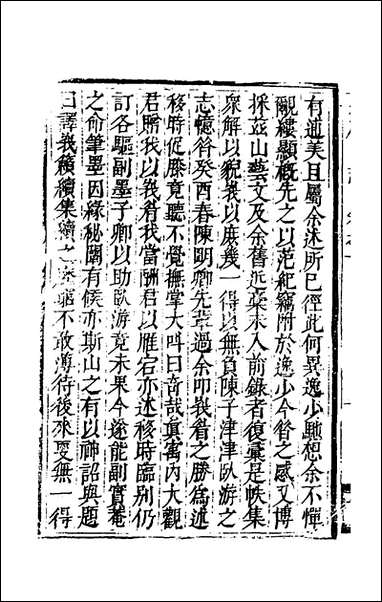 有逋美且屬余述所已徑此何異逸少馳想余不憚
覼縷顯概先之以范紀竊附於逸少今昝之感又博
採茲山藝文及余舊近藁未入前錄者復彙是帙集
衆解以貌峩以庶幾一得以無負陳子津津臥游之
志憶昝癸酉春陳明卿先軰過余叩峩眉之勝爲述
移時促膝竟聽不覺撫掌大呌曰奇哉眞寓内大觀
君賠我以峩眉我當酬君以雁宕亦述移時臨别仍
訂各驅副墨子卿以助臥游竟未果今遂能副實菴
之命筆墨因緣秘闢有候亦斯山之有以神詔與題
曰譯峩籟續集續之窮不敢薄待後來耍無一得